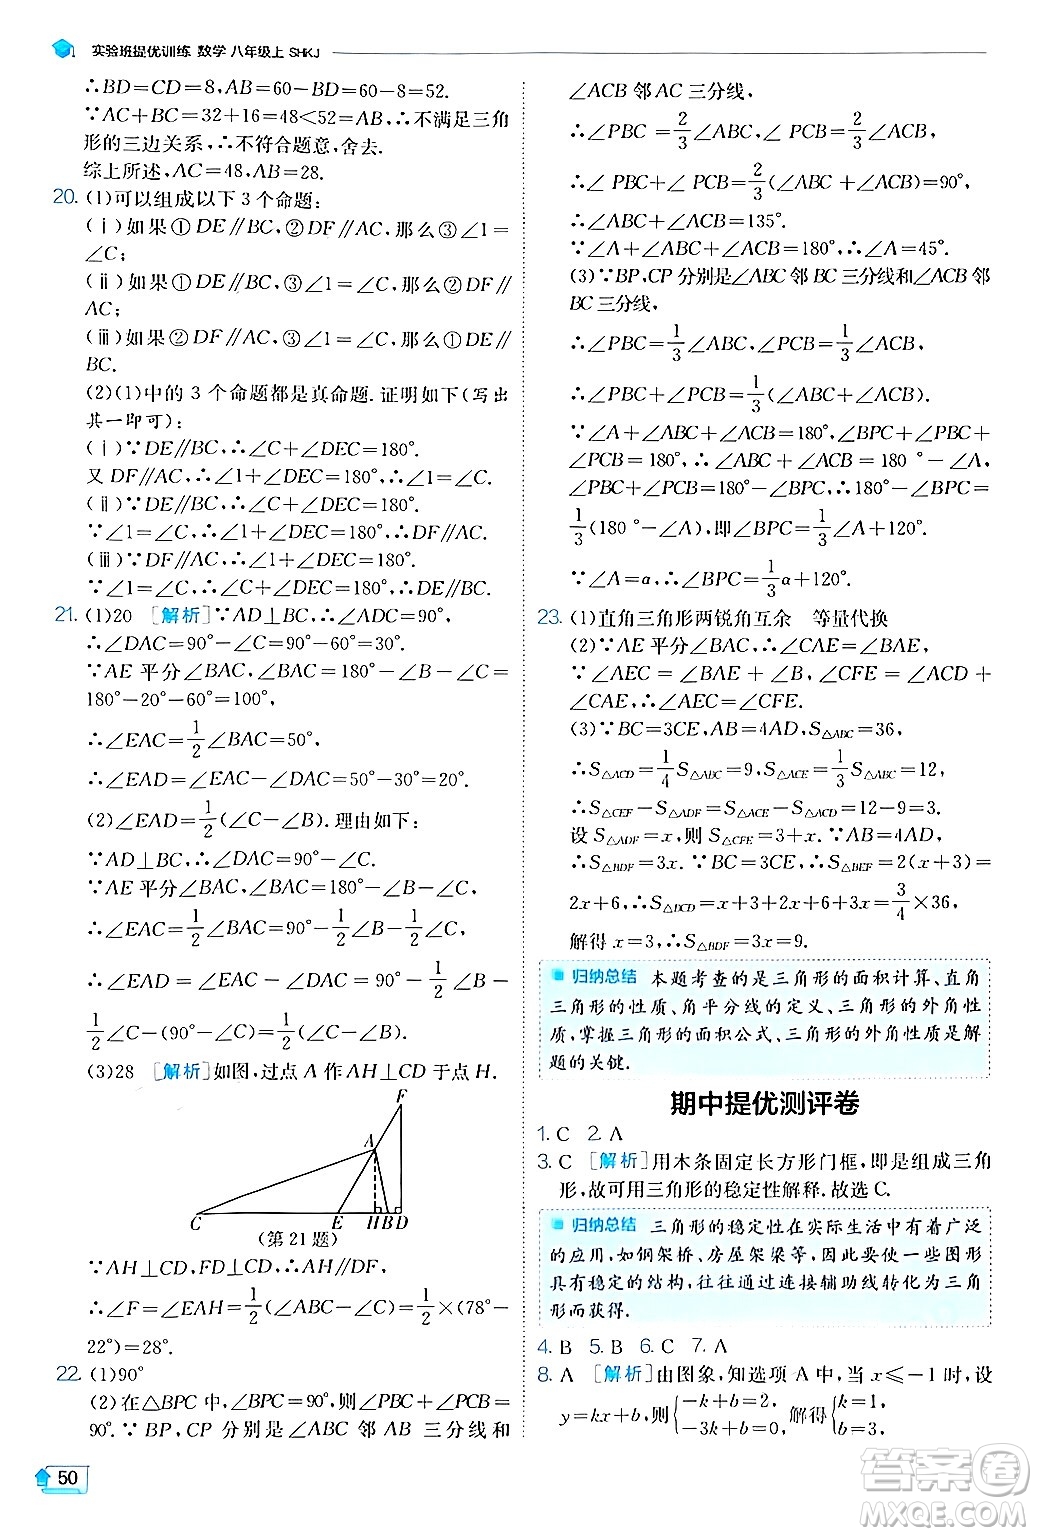 实验班提优训练 数学 八年级上 SHKJ
∴BD=CD=8,AB=60-BD=60-8=52.
∵AC+BC=32+16=48<52=AB,∴不满足三角
形的三边关系,∴不符合题意,舍去.
综上所述,AC=48,AB=28.
20. (1)可以组成以下 3 个命题:
(ⅰ)如果①DE∥BC,②DF∥AC,那么③∠1=
∠C;
(ⅱ)如果①DE∥BC,③∠1=∠C,那么②DF∥
AC;
(ⅲ)如果②DF∥AC,③∠1=∠C,那么①DE∥
BC.
(2)(1)中的 3 个命题都是真命题.证明如下(写出
其一即可):
(ⅰ)∵DE∥BC,∴∠C+∠DEC=180°.
又 DF∥AC,∴∠1+∠DEC=180°,∴∠1=∠C.
(ⅱ)∵DE∥BC,∴∠C+∠DEC=180°.
∵∠1=∠C,∴∠1+∠DEC=180°,∴DF∥AC.
(ⅲ)∵DF∥AC,∴∠1+∠DEC=180°.
∵∠1=∠C,∴∠C+∠DEC=180°,∴DE∥BC.
21. (1)20 [解析]∵AD⊥BC,∴∠ADC=90°,
∴∠DAC=90°-∠C=90°-60°=30°.
∵AE 平分∠BAC,∠BAC=180°-∠B-∠C=
180°-20°-60°=100°,
∴∠EAC=1/2∠BAC=50°,
∴∠EAD=∠EAC-∠DAC=50°-30°=20°.
(2)∠EAD=1/2(∠C-∠B).理由如下:
∵AD⊥BC,∴∠DAC=90°-∠C.
∵AE 平分∠BAC,∠BAC=180°-∠B-∠C,
∴∠EAC=1/2∠BAC=90°-1/2∠B-1/2∠C,
∴∠EAD=∠EAC-∠DAC=90°-1/2∠B-
1/2∠C-(90°-∠C)=1/2(∠C-∠B).
(3)28 [解析]如图,过点 A 作AH⊥CD于点 H.
F
A
C E H B D
(第21题)
∵AH⊥CD,FD⊥CD,∴AH∥FD,
∴∠F=∠EAH=1/2(∠ABC-∠C)=1/2(78°-
22°)=28°.
22. (1)90°
(2)在△BPC 中,∠BPC=90°,则∠PBC+∠PCB=
90°. ∵BP,CP 分别是∠ABC 邻 AB 三分线和
50
∠ACB 邻 AC 三分线,
∴∠PBC=2/3∠ABC,∠PCB=2/3∠ACB,
∴∠PBC+∠PCB=2/3(∠ABC+∠ACB)=90°,
∴∠ABC+∠ACB=135°.
∵∠A+∠ABC+∠ACB=180°,∴∠A=45°.
(3)∵BP,CP 分别是∠ABC 邻 BC 三分线和∠ACB 邻
BC 三分线,
∴∠PBC=1/3∠ABC,∠PCB=1/3∠ACB,
∴∠PBC+∠PCB=1/3(∠ABC+∠ACB).
∵∠A+∠ABC+∠ACB=180°,∠BPC+∠PBC+
∠PCB=180°,∴∠ABC+∠ACB=180°-∠A,
∴∠BPC=180°-(∠PBC+∠PCB)=180°-
1/3(180°-∠A),即∠BPC=1/3∠A+120°.
∵∠A=α,∴∠BPC=1/3α+120°.
23. (1)直角三角形两锐角互余 等量代换
(2)∵AE 平分∠BAC,∴∠CAE=∠BAE,
∵∠AEC=∠BAE+∠B,∠CFE=∠ACD+
∠CAE,∴∠AEC=∠CFE.
(3)∵BC=3CE,AB=4AD,S△ABC=36,
∴S△ACD=1/4S△ABC=9,S△ACE=1/3S△ABC=12,
∴S△CEF-S△ADF=S△ACE-S△ACD=12-9=3.
设 S△ADF=x,则 S△CFE=3+x.∵AB=4AD,
∴S△BDF=3x.∵BC=3CE,∴S△BEF=2(x+3)=
2x+6,∴S△BCD=x+3+2x+6+3x=3/4×36,
解得 x=3,∴S△BDF=3x=9.
归纳总结 本题考查的是三角形的面积计算、直角
三角形的性质、角平分线的定义、三角形的外角性
质,掌握三角形的面积公式、三角形的外角性质是解
题的关键.
期中提优测评卷
1. C 2. A
3. C [解析]用木条固定长方形门框,即是组成三角
形,故可用三角形的稳定性解释.故选 C.
归纳总结 三角形的稳定性在实际生活中有着广泛
的应用,如钢架桥、房屋架梁等,因此要使一些图形
具有稳定的结构,往往通过连接辅助线转化为三角
形而获得.
4. B 5. B 6. C 7. A
8. A [解析]由图象,知选项 A 中,当 x≤-1时,设
y=kx+b,则{-k+b=2,-3k+b=0,解得{k=1,b=3.
答案圈
MXQE.COM